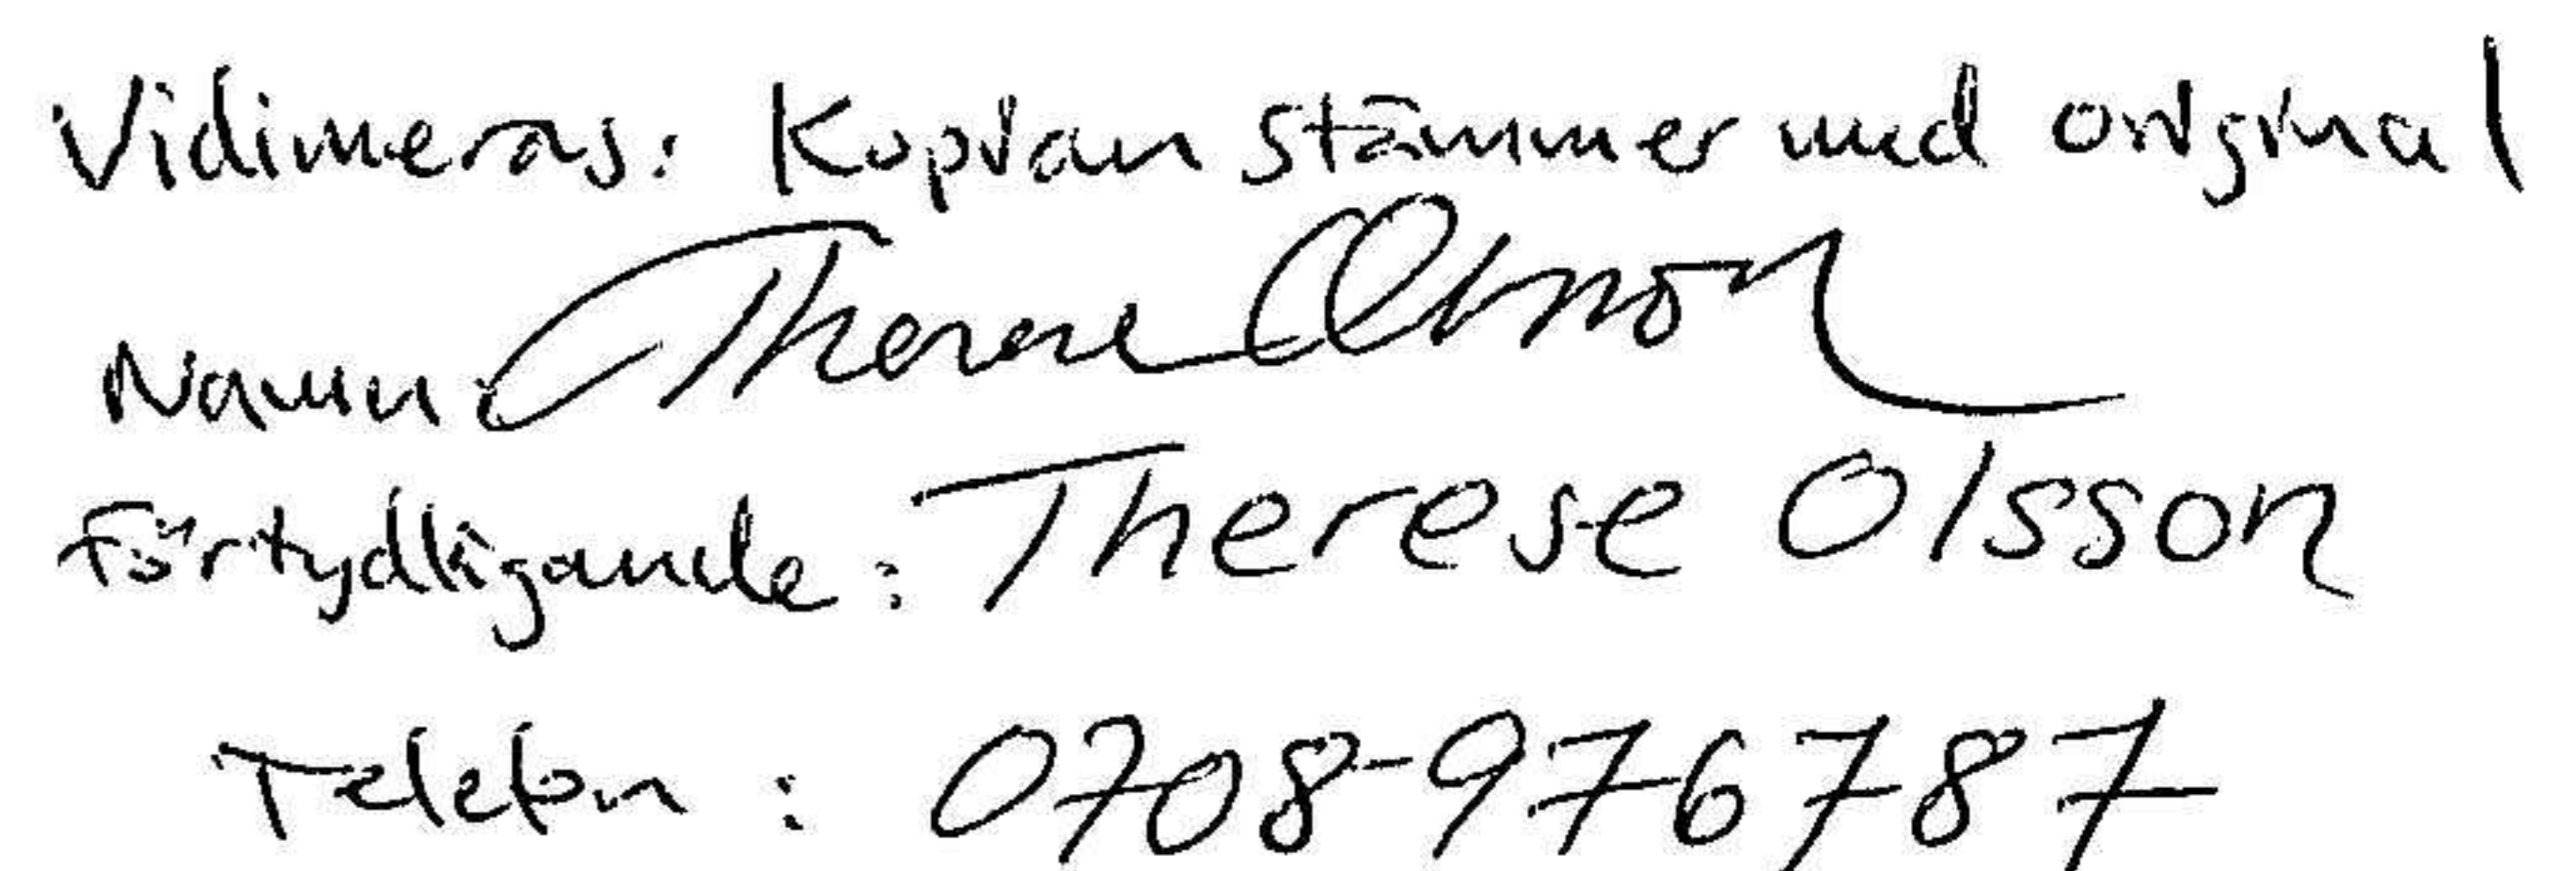 Vidimeras: Kopian stämmer med original
Namn: Therese Olsson
Förtydligande: Therese Olsson
Telefon: 0708-976787